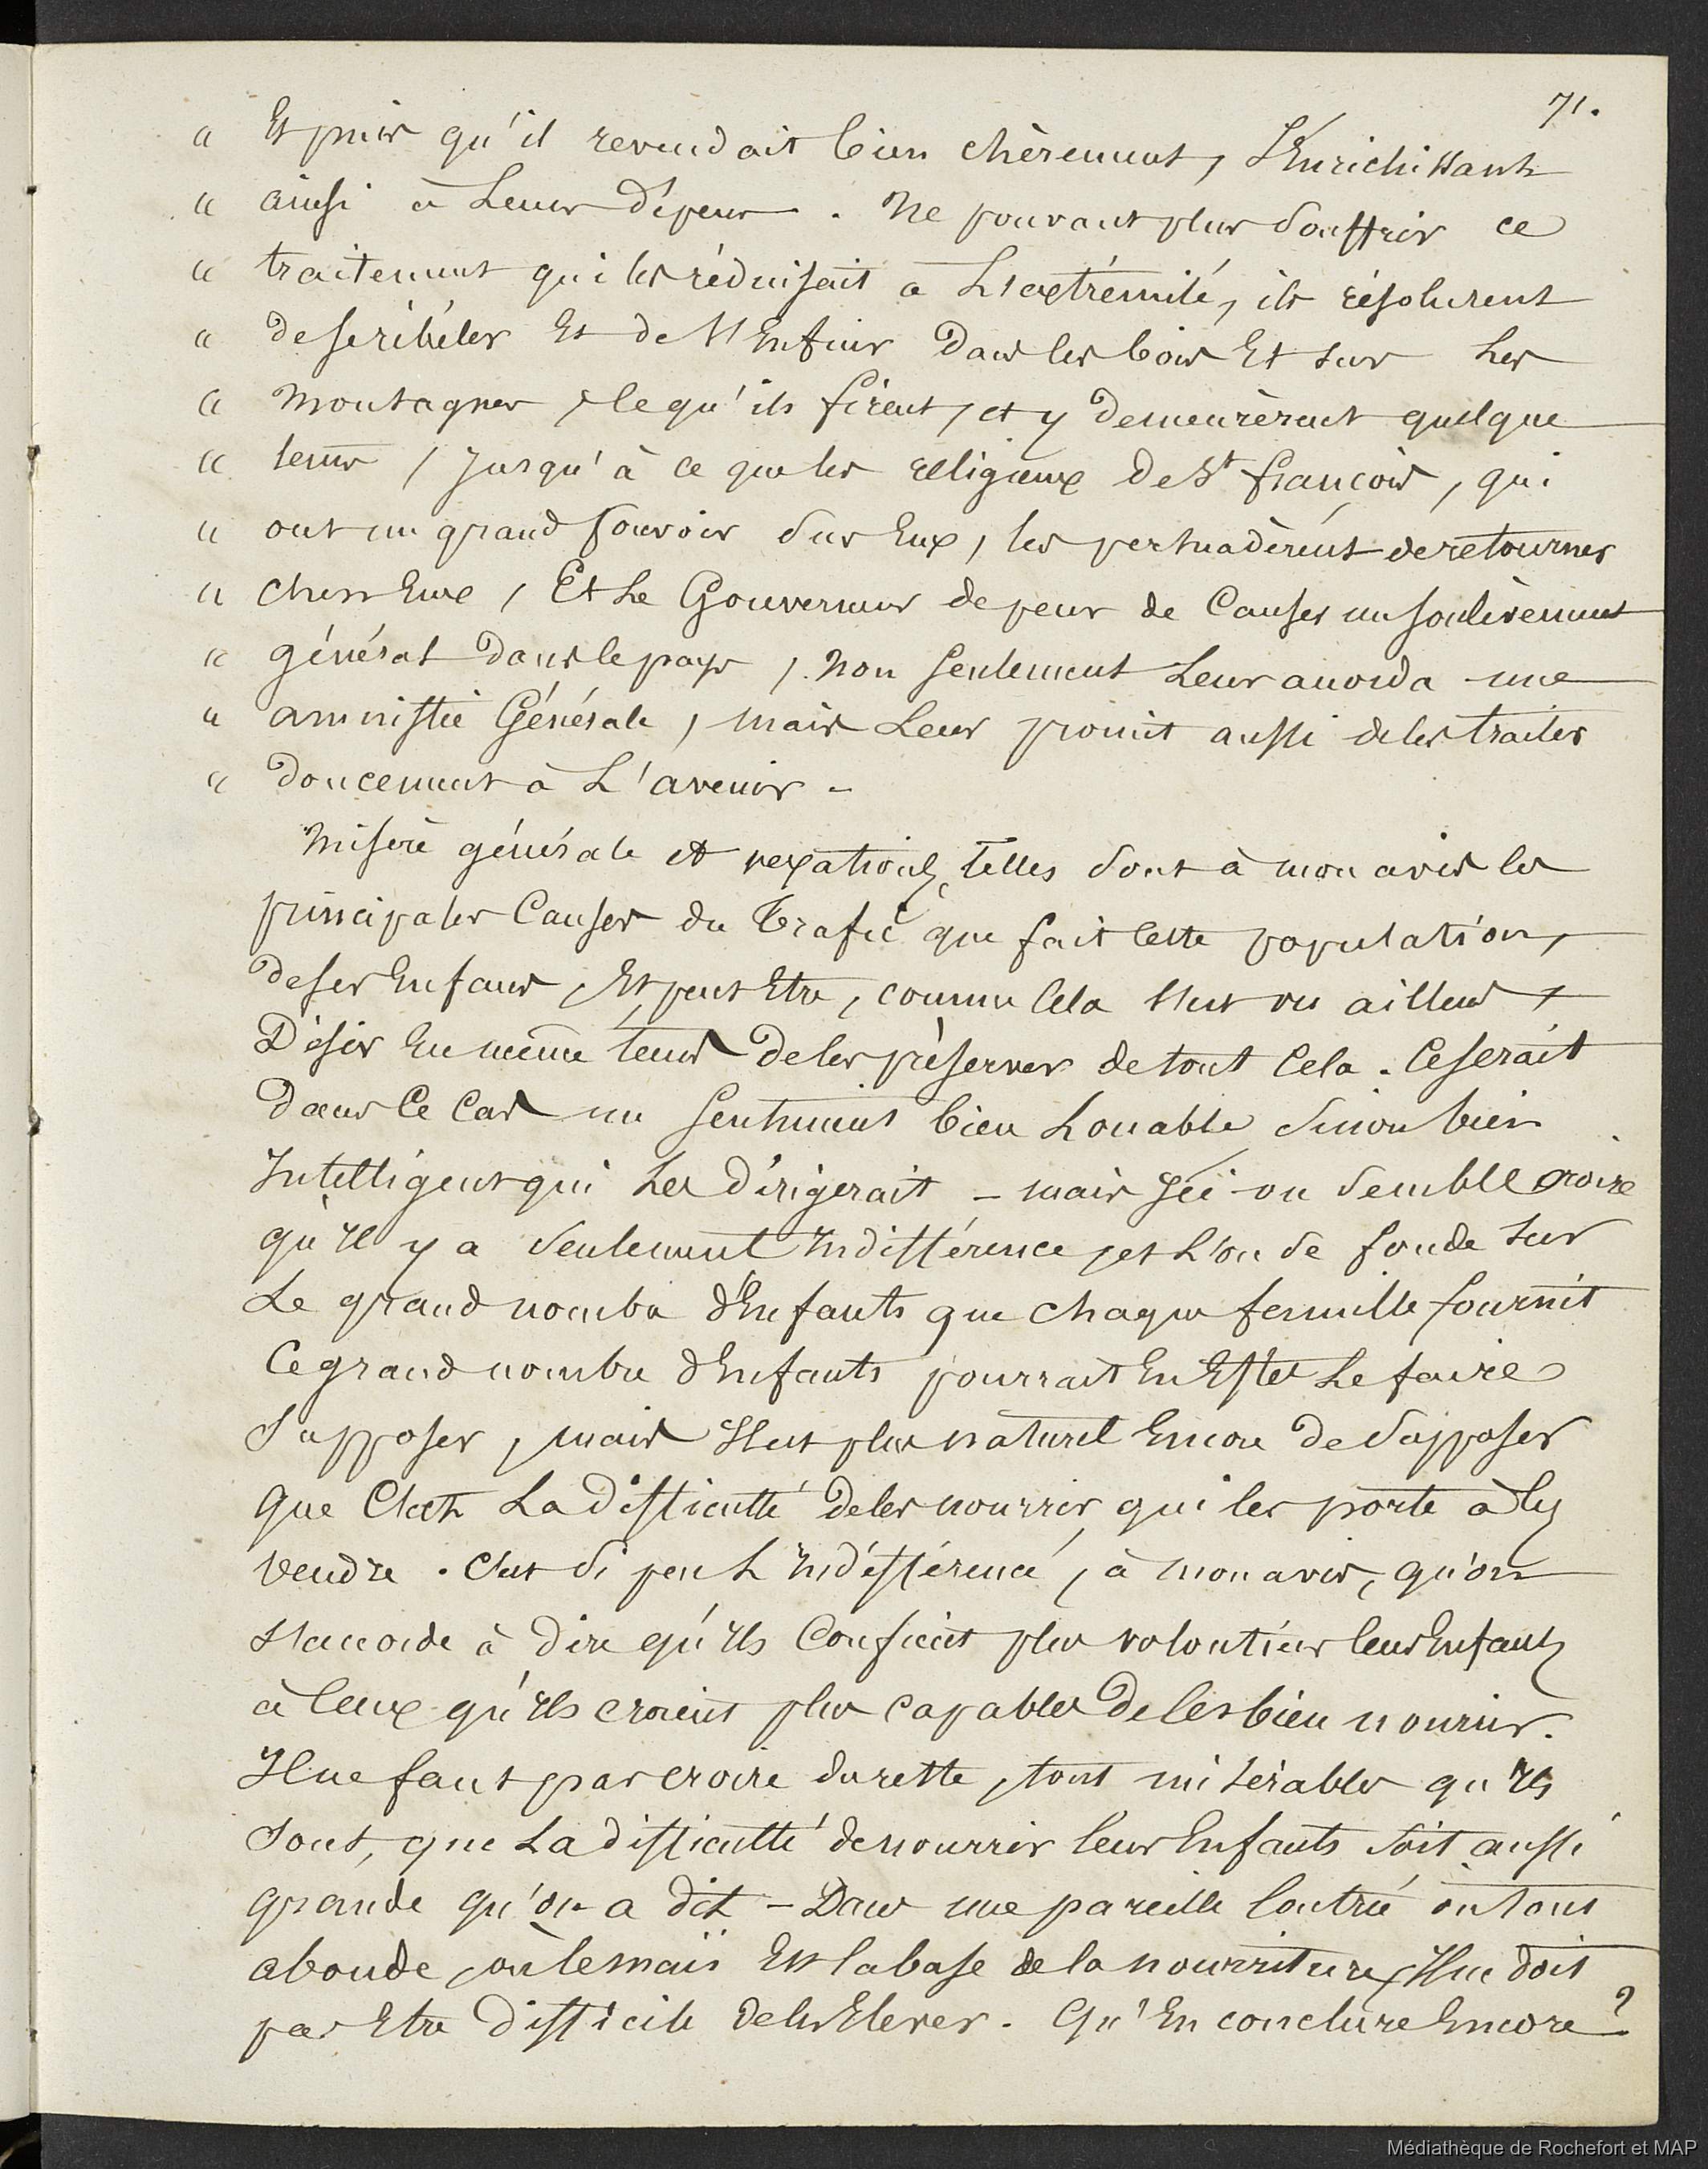 71.
" Et puis qu'il revendait bien chèrement, s'Enrichissant
" ainsi à Leurs dépens. Ne pouvant plus souffrir ce
" traitement qui les réduisait à L'extrémité, ils résolurent
" de se rébéler Et de s'Enfuir Dans les bois Et sur Les
" montagnes, ce qu'ils firent, et y demeurèrent quelque
" tems, jusqu'à ce que les religieux de St françois, qui
" ont un grand pouvoir sur Eux, les persuadèrent de retourner
" chez Eux, Et Le Gouverneur de peur de Causer un soulèvement
" général dans le pays, non seulement Leur accorda une
" amnistie Générale, mais Leur promit aussi de les traiter
" doucement à L'avenir.
Misère générale et vexations, telles sont à mon avis les
principales Causes du Trafic que fait Cette population,
de ses Enfants, Et peut Etre, comme Cela s'est vu ailleurs,
Désir En même tems de les préserver de tout Cela. Ce serait
Dans Ce Cas un sentiment bien Louable sinon bien
Intelligent qui Les Dirigerait - mais Ici on semble croire
qu'Il y a seulement Indifférence, et L'on se fonde sur
Le grand nombre d'Enfants que chaque famille fournit
Ce grand nombre d'Enfants pourrait En Effet Le faire
supposer, mais Il est plus naturel Encore De supposer
que C'est La Difficulté de les nourrir qui les porte à les
vendre. C'est si peu L'Indifférence, à mon avis, qu'on
s'accorde à dire qu'Ils Confient plus volontiers leurs Enfants
à Ceux qu'Ils croient plus capables De les bien nourrir.
Il ne faut pas croire du reste, tout misérables qu'Ils
sont, que La difficulté de nourrir leurs Enfants soit aussi
grande qu'on a dit - Dans une pareille Contrée où tout
abonde, où le maïs Est la base de la nourriture, Il ne doit
pas Etre Difficile de les Elever. Qu'En conclure Encore ?
Médiathèque de Rochefort et MAP